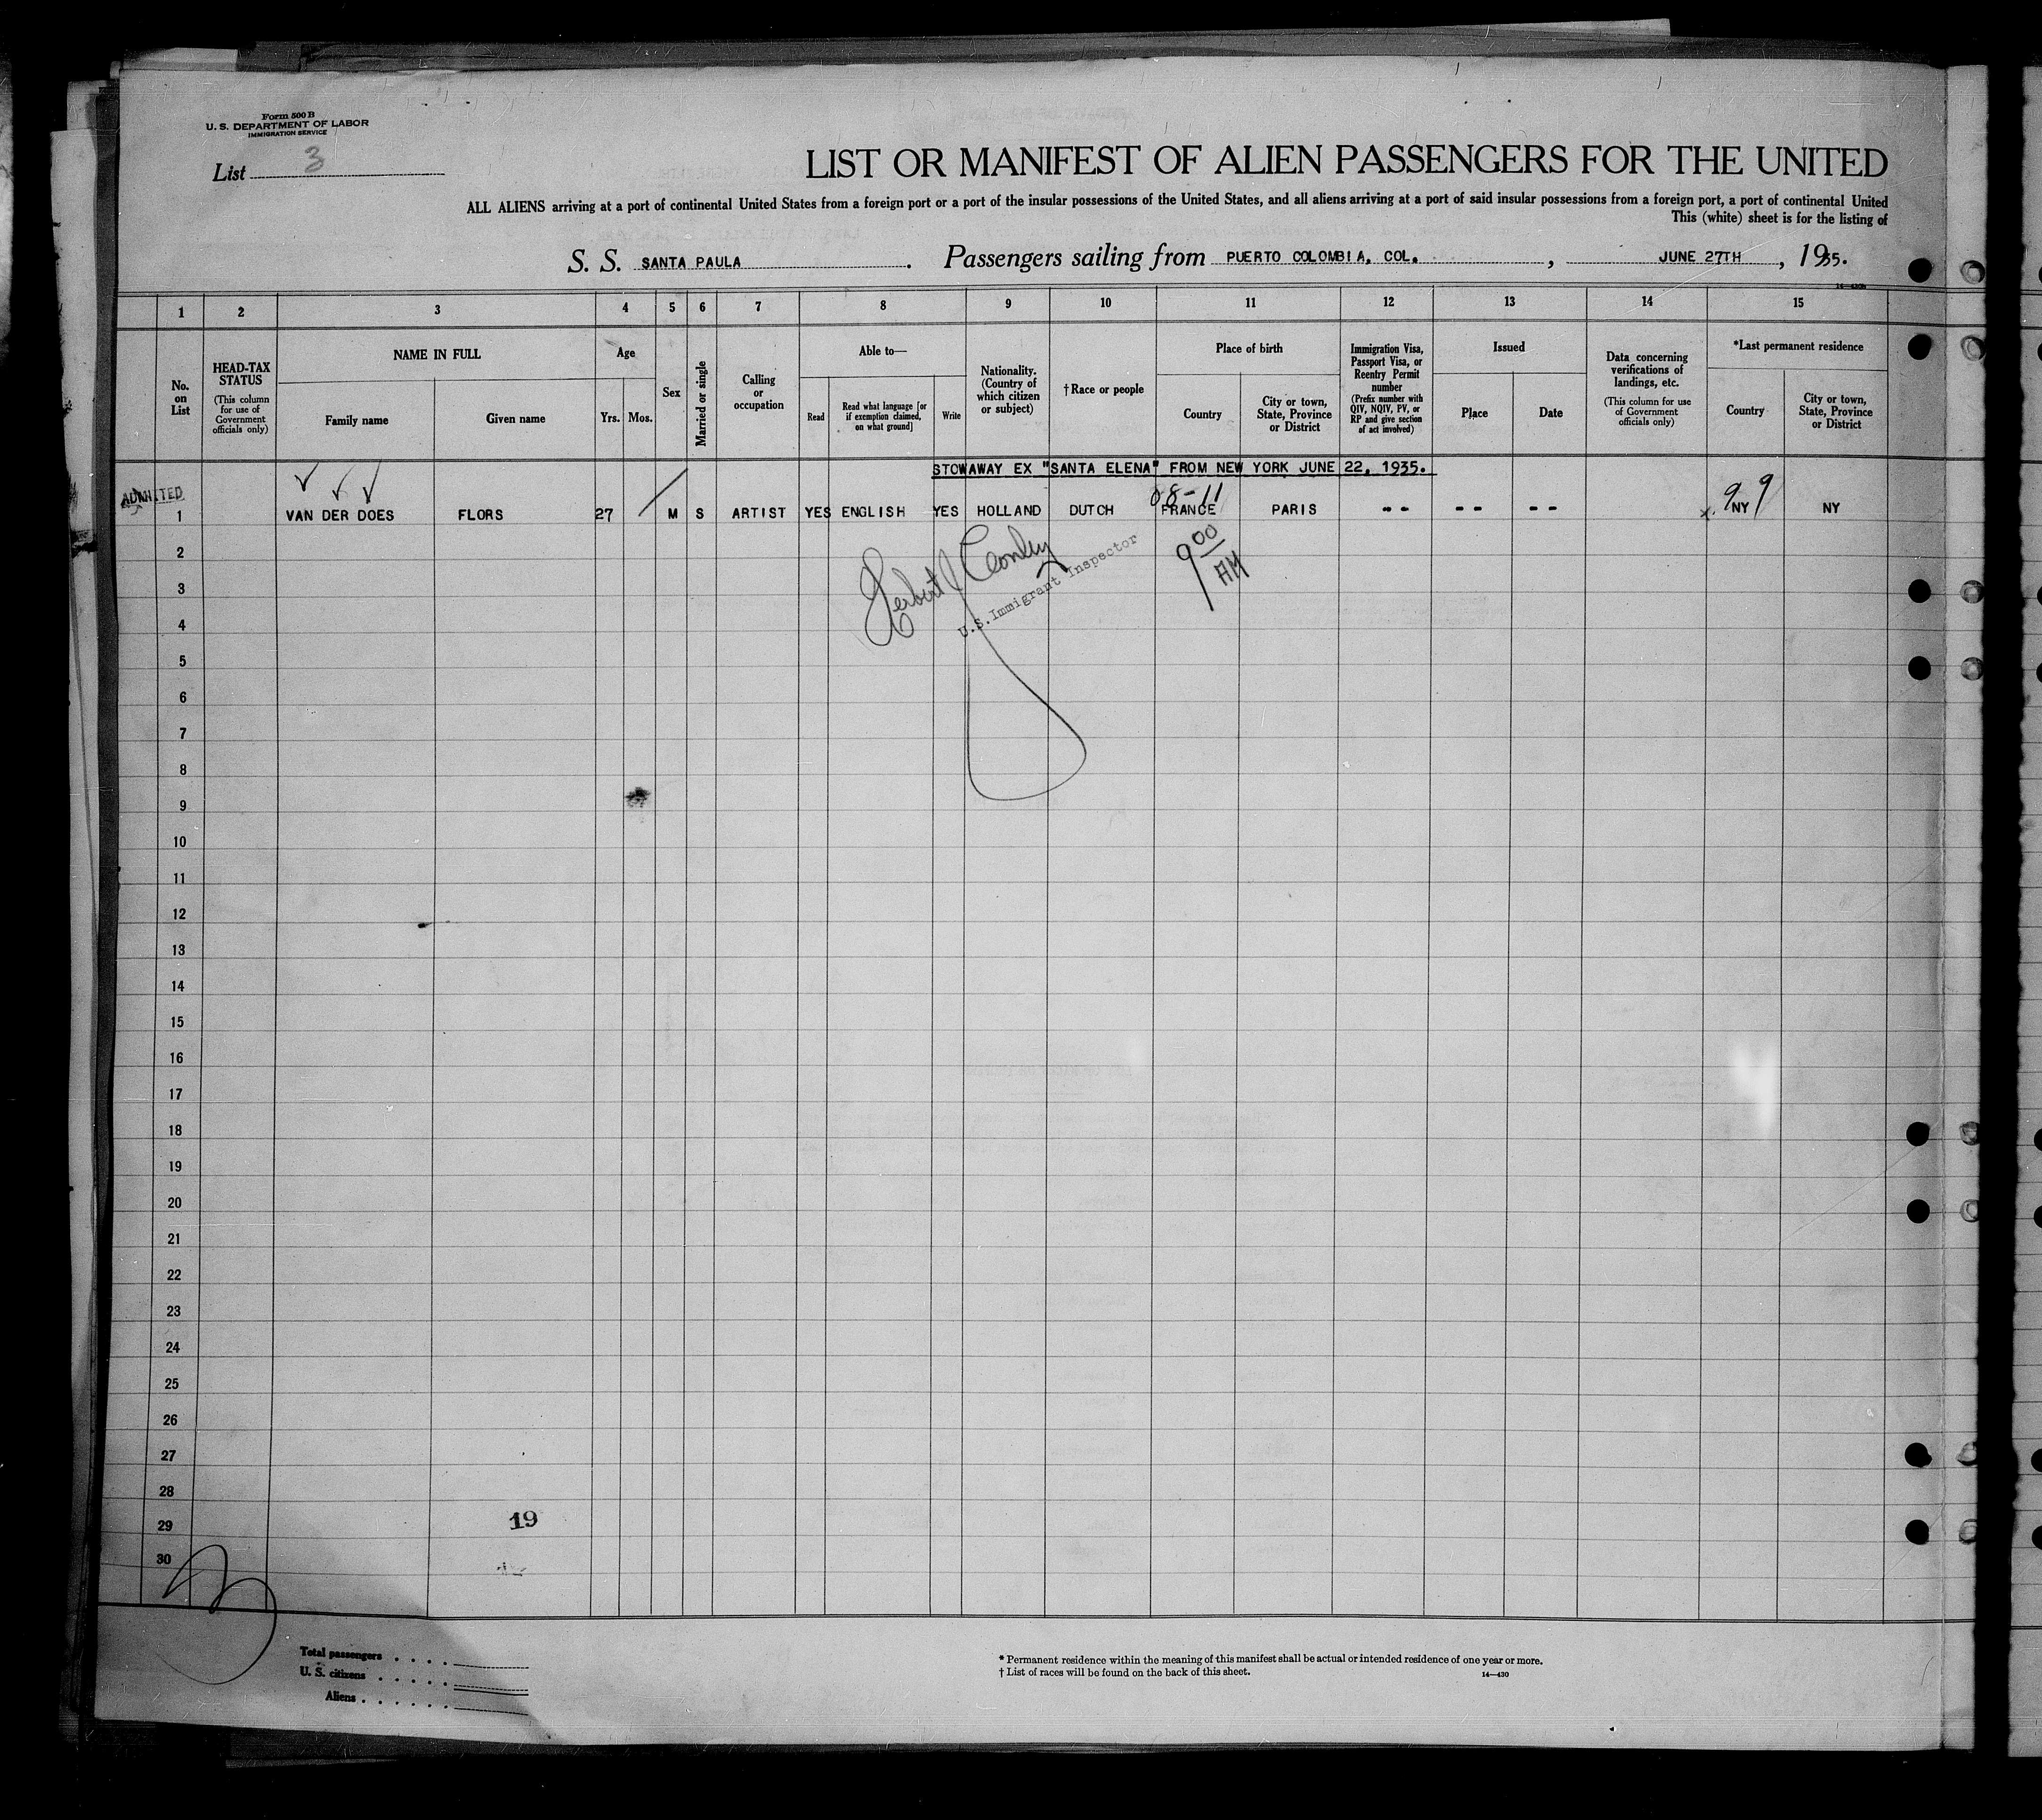 Form 500 B
U. S. DEPARTMENT OF LABOR
IMMIGRATION SERVICE
List 3
LIST OR MANIFEST OF ALIEN PASSENGERS FOR THE UNITED
ALL ALIENS arriving at a port of continental United States from a foreign port or a port of the insular possessions of the United States, and all aliens arriving at a port of said insular possessions from a foreign port, a port of continental United
This (white) sheet is for the listing of
S. S. SANTA PAULA. Passengers sailing from PUERTO COLOMBIA, COL., JUNE 27TH, 1935.
1 2 3 4 5 6 7 8 9 10 11 12 13 14 15
No. on List
HEAD-TAX STATUS (This column for use of Government officials only)
NAME IN FULL
Family name
Given name
Age
Yrs. Mos.
Sex
Married or single
Calling or occupation
Able to—
Read
Read what language [or if exemption claimed, on what ground]
Write
Nationality. (Country of which citizen or subject)
†Race or people
Place of birth
Country
City or town, State, Province or District
Immigration Visa, Passport Visa, or Reentry Permit number (Prefix number with QIV, NQIV, PV, or RP and give section of act involved)
Issued
Place
Date
Data concerning verifications of landings, etc. (This column for use of Government officials only)
*Last permanent residence
Country
City or town, State, Province or District
STOWAWAY EX "SANTA ELENA" FROM NEW YORK JUNE 22, 1935.
ADMITTED
08-11
99
1 VAN DER DOES FLORS 27 M S ARTIST YES ENGLISH YES HOLLAND DUTCH FRANCE PARIS -- -- -- NY NY
Herbert J Conley
U.S. Immigrant Inspector
9 00 AM
2
3
4
5
6
7
8
9
10
11
12
13
14
15
16
17
18
19
20
21
22
23
24
25
26
27
28
29
30
19
Total passengers
U. S. citizens
Aliens
* Permanent residence within the meaning of this manifest shall be actual or intended residence of one year or more.
† List of races will be found on the back of this sheet.
14—430